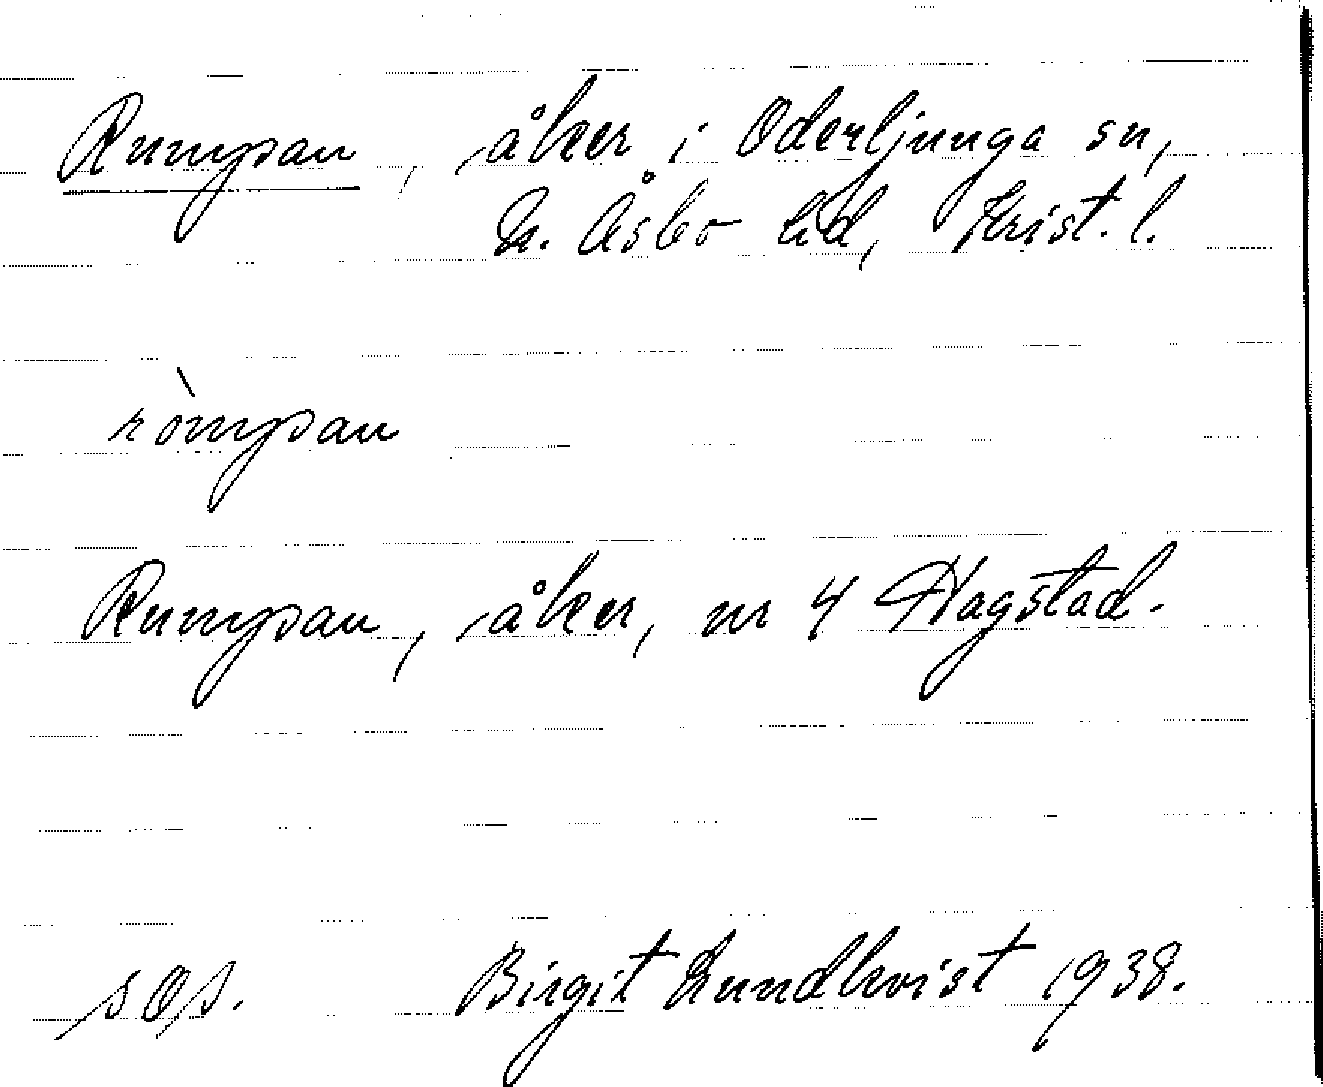 Rumpan, åker i Oderljunga sn,
N. Åsbo hd, Krist. l.
ròmpan
Rumpan, åker, nr 4 Hagstad.
Birgit Lundkvist 1938.